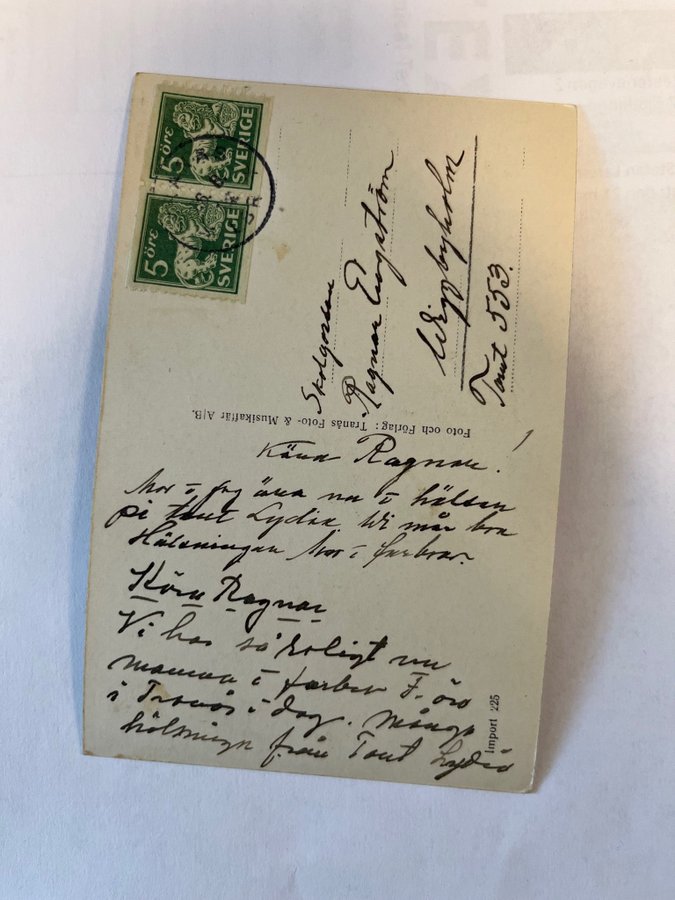 5 ÖRE SVERIGE
5 ÖRE SVERIGE
Skolgossen
Ragnar Engström
Wiggbyholm
Tomt 553.
Foto och Förlag: Tranås Foto- & Musikaffär A/B.
Kära Ragnar!
Mor & jag äro nu & hälsar
på tant Lydia. Vi mår bra
Hälsningar Mor & farbror.
Kära Ragnar
Vi har så roligt nu
mamma & farbror F. äro
i Tranås i dag. Många
hälsningar från Tant Lydia
Import 225